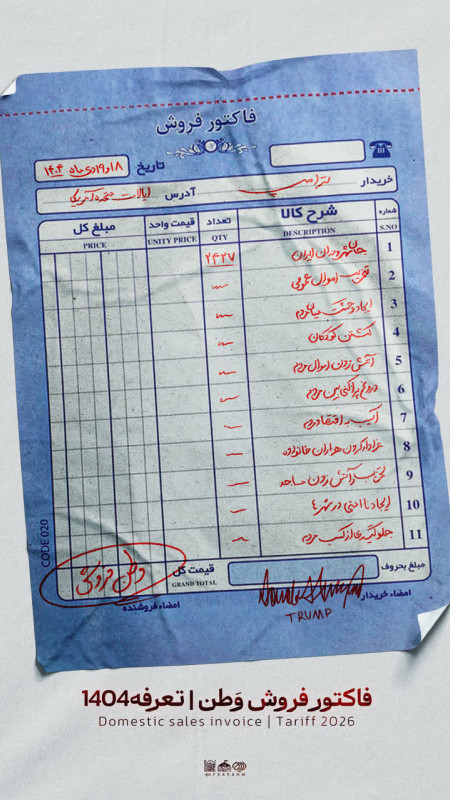 فاکتور فروش
تاریخ ۱۸و۱۹دی ماه ۱۴۰۴
خریدار ترامپ آدرس ایالات متحده آمریکا
شماره شرح کالا تعداد قیمت واحد مبلغ کل
S.NO DESCRIPTION QTY UNITY PRICE PRICE
1 جان شهروندان ایران ۲۴۲۷
2 تخریب اموال عمومی
3 ایجاد وحشت میان مردم
4 کشتن کودکان
5 آتش زدن اموال مردم
6 دروغ پراکنی بین مردم
7 آسیب به اقتصاد مردم
8 عزادار کردن هزاران خانواده
9 تخریب و آتش زدن مساجد
10 ایجاد ناامنی در شهر
11 جلوگیری از کسب مردم
مبلغ بحروف قیمت کل وطن فروشی
GRAND TOTAL
امضاء خریدار امضاء فروشنده
TRUMP
CODE 020
فاکتور فروش وَطن | تعرفه 1404
Domestic sales invoice | Tariff 2026